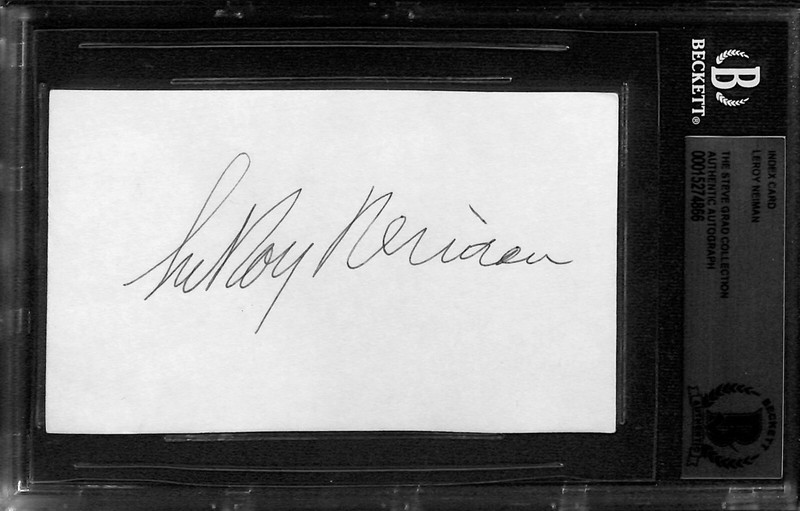 LeRoy Neiman
B
BECKETT®
INDEX CARD
LEROY NEIMAN
THE STEVE GRAD COLLECTION
AUTHENTIC AUTOGRAPH
00015274866
B
BECKETT